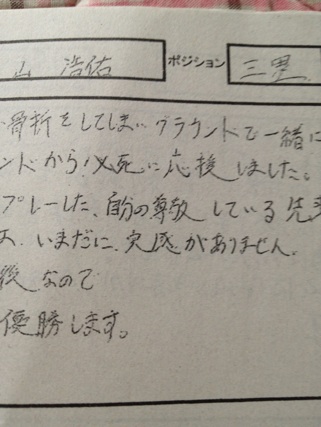 山 浩佑 ポジション 三塁
骨折をしてしまい グラウンドで一緒に
ンドから!必死に応援しました。
プレーした、自分の尊敬している先輩
、いまだに、実感がありません。
後なので
優勝します。